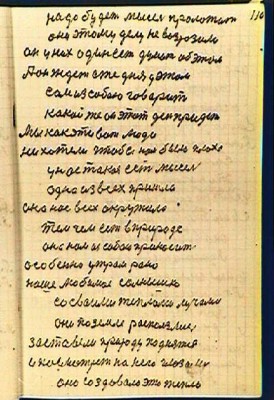 110
надо будет мысел проложит
они этому делу не возрозило
он у нах один сет думат об этом
А он ждет еже дня в этом
сам из собою говорит
какой же он этот ден придет
Мы как эта вот люди
не хотели чтобы нам было плохо
у нас такая ест мысел
одна из всех пришла
она нас всех окружило
тем чем ест в природе
оно нам из собой приносит
особенно утрам рано
наше любимое солнышко
со сваими теплыми лучами
они по земле расколяли
заставели природу поднятся
и посмотрет на него глозами
оно создовало это тепло